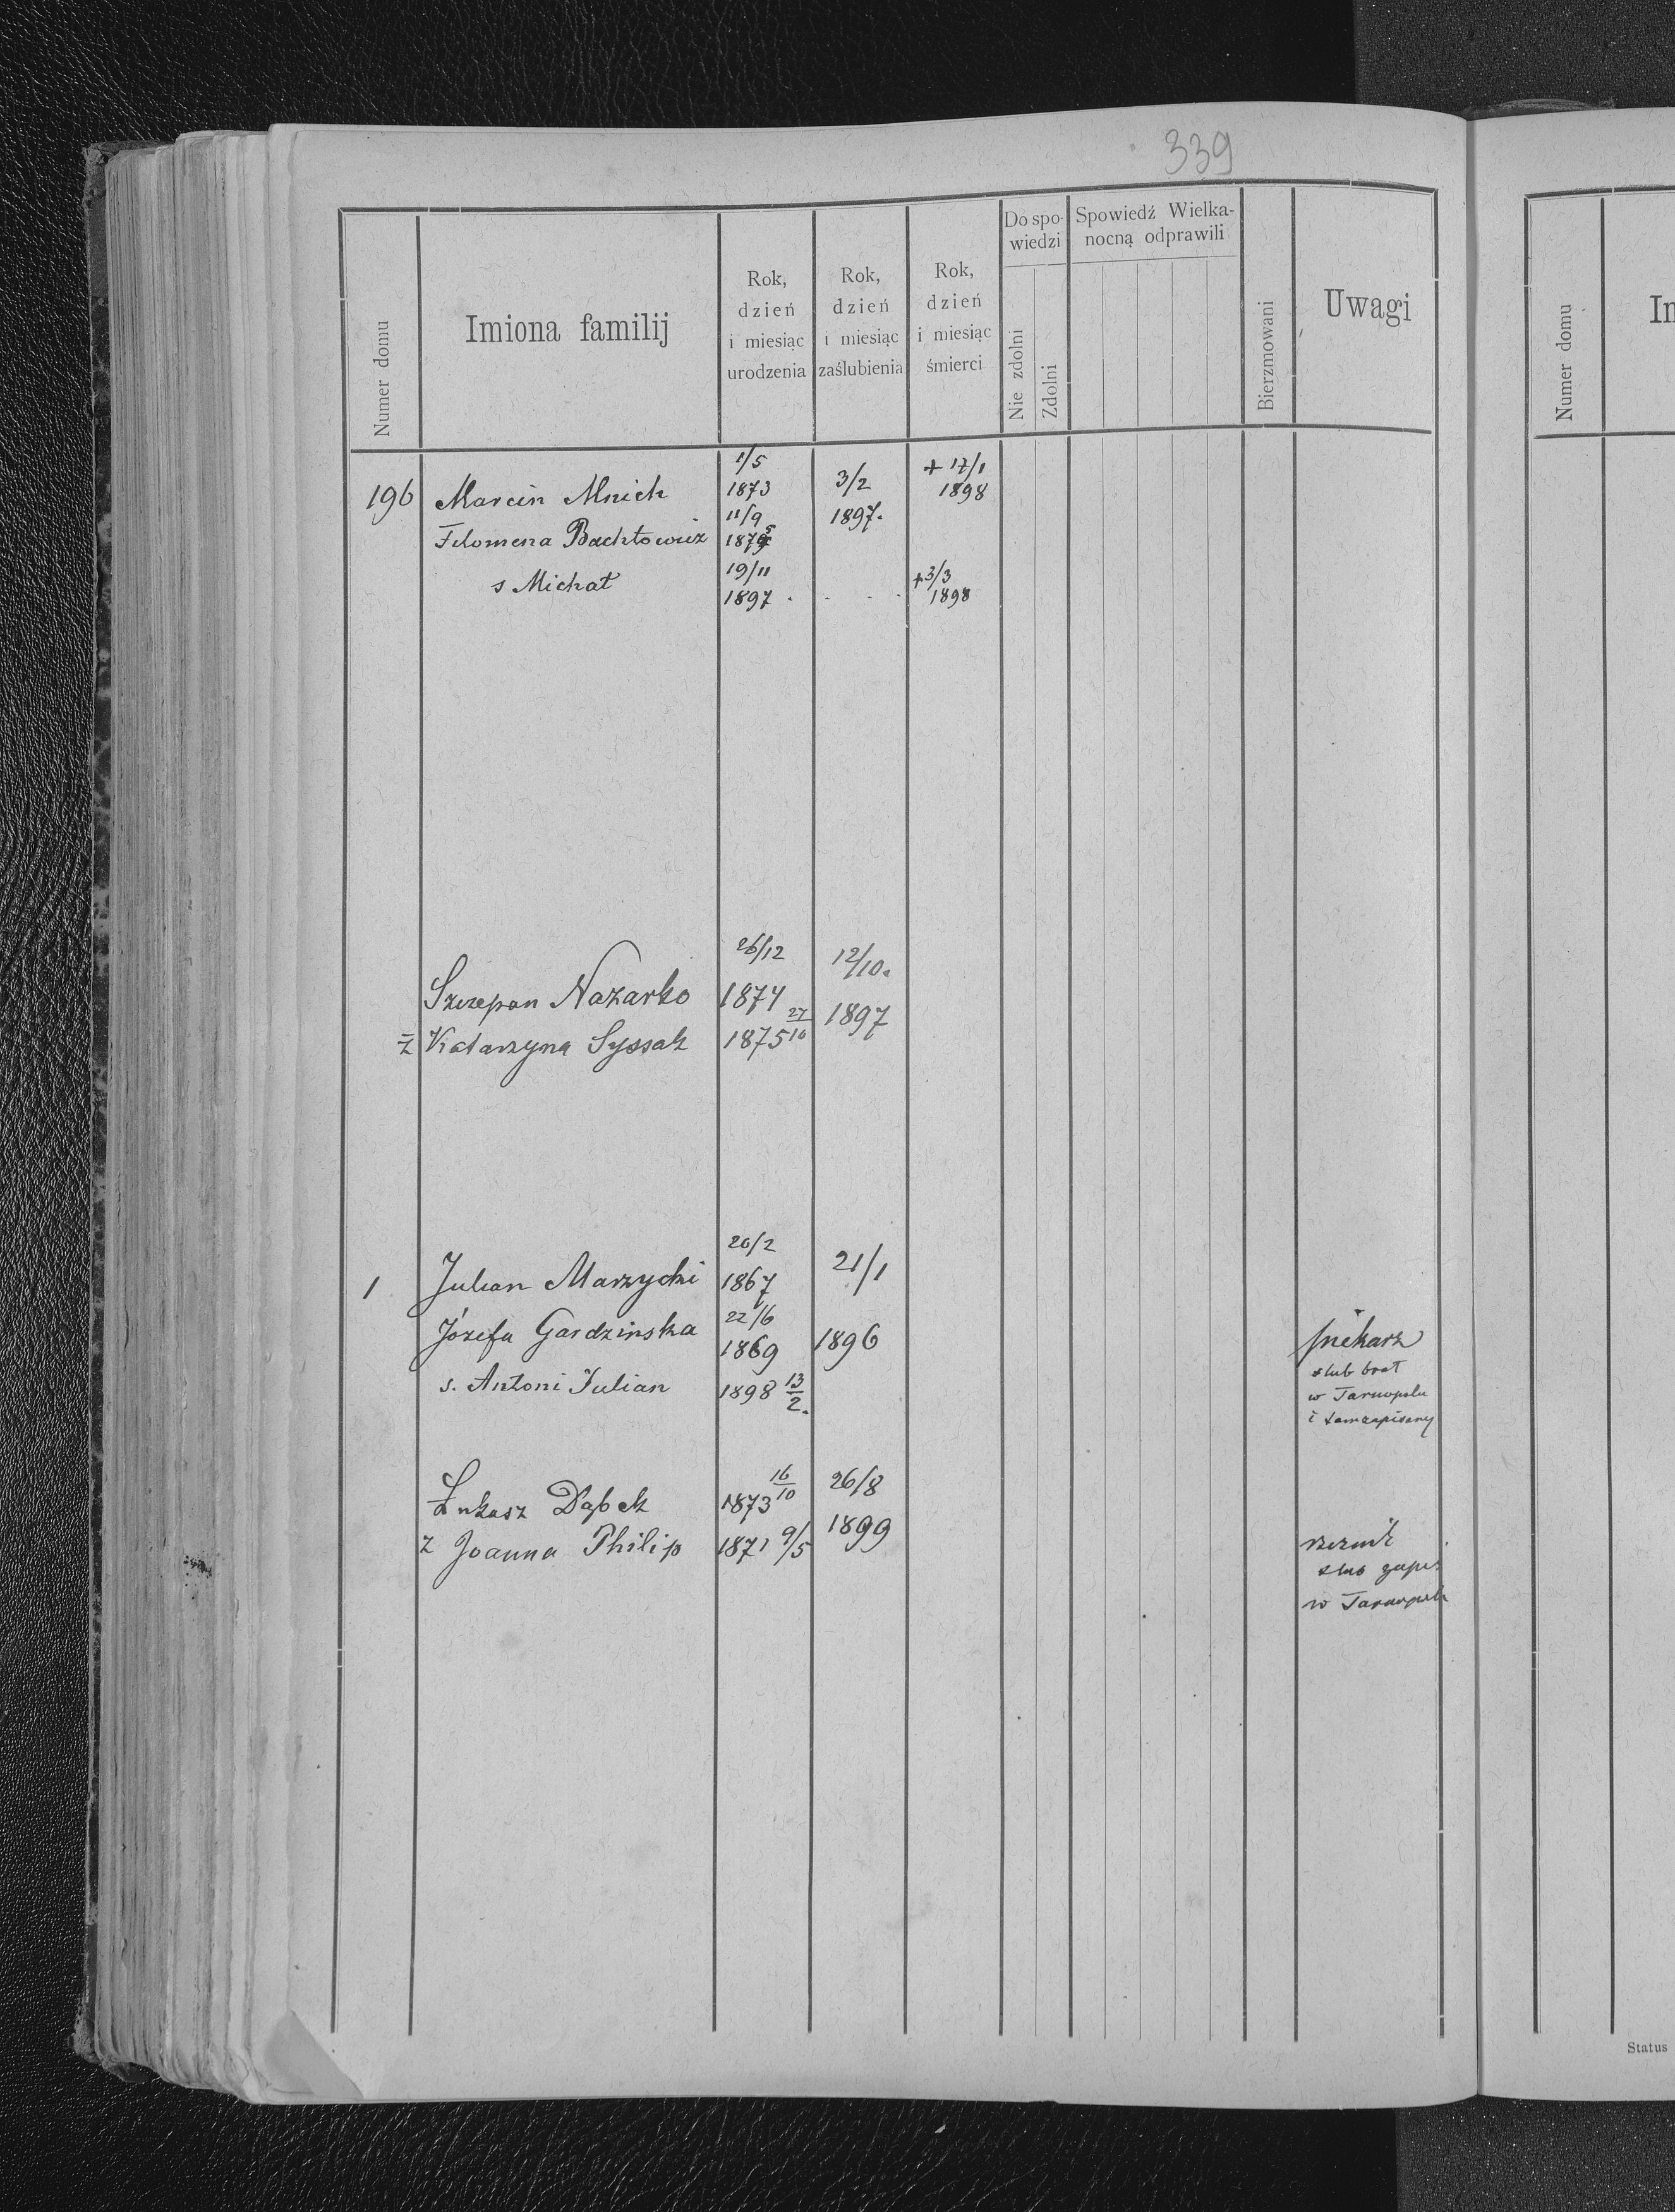 339
Numer domu
Imiona familij
Rok,
dzień
i miesiąc
urodzenia
Rok,
dzień
i miesiąc
zaślubienia
Rok,
dzień
i miesiąc
śmierci
Do spo-
wiedzi
Nie zdolni
Zdolni
Spowiedź Wielka-
nocną odprawili
Bierzmowani
Uwagi
196 Marcin Mnich 1/5 1873 3/2 1897. + 17/1 1898
Filomena Bachtowicz 11/9 1875
s Michał 19/11 1897 + 3/3 1898
Szczepan Nazarko 26/12 1874 12/10. 1897
ż Katarzyna Syssak 1875 27/10
1 Julian Marzycki 20/2 1867 21/1 1896
Józefa Gardzinska 22/6 1869
s. Antoni Julian 1898 13/2.
ślub brał
w Tarnopolu
i tam zapisany
Łukasz Dąbek 1873 16/10 26/8 1899
ż Joanna Philip 1871 9/5
rzeznik
ślub zapis
w Tarnopolu
Numer domu
Status